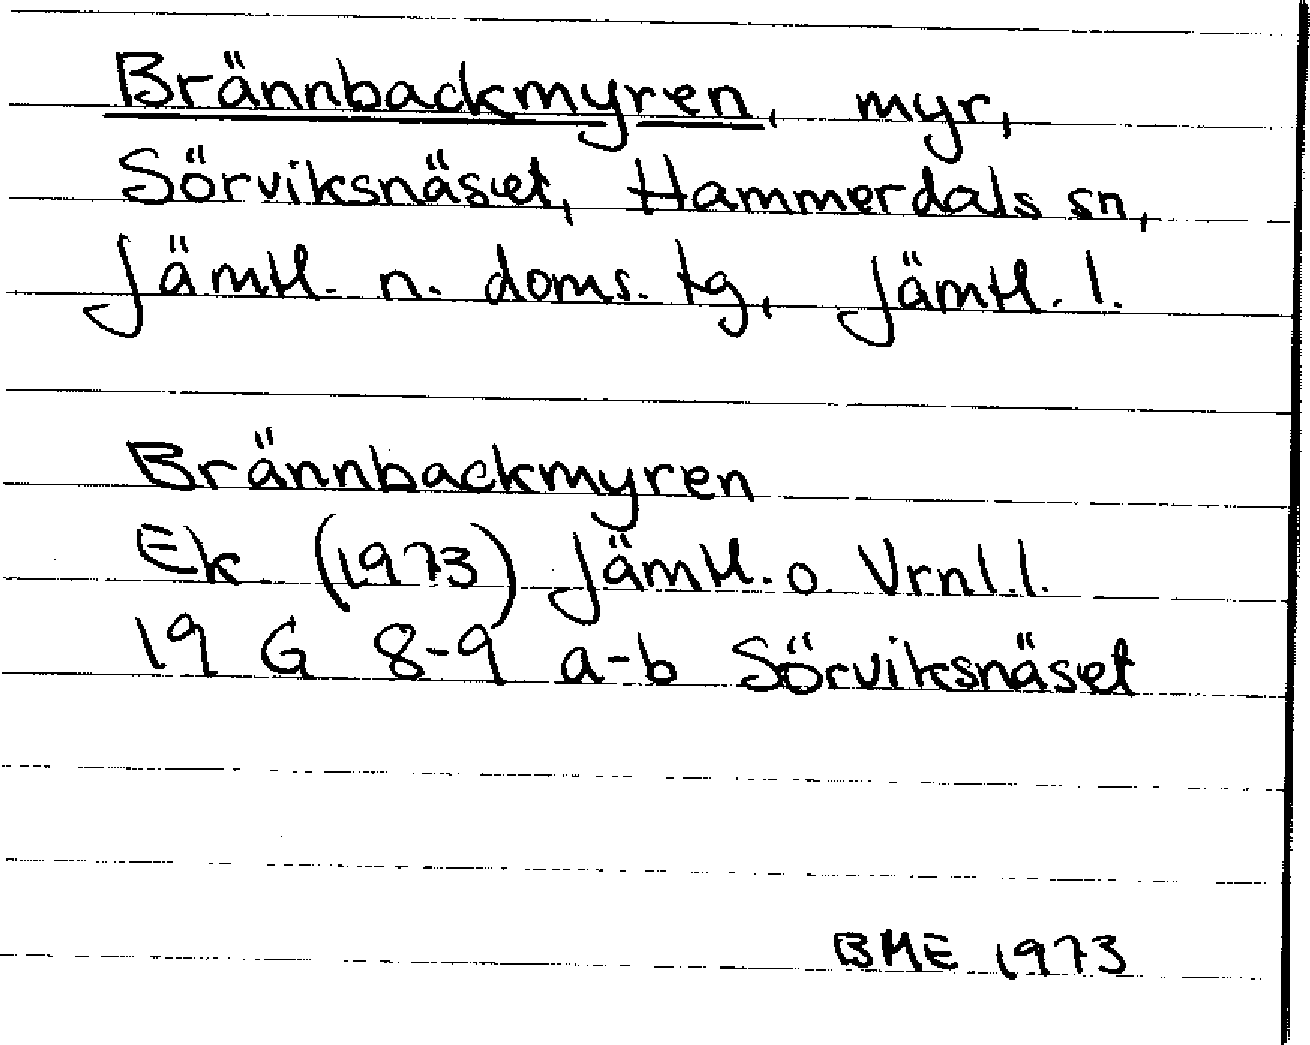 Brännbackmyren, myr,
Sörviksnäset, Hammerdals sn,
Jämtl. n. doms. tg, Jämtl. l.
Brännbackmyren
Ek (1973) Jämtl. o. Vrnl. l.
19 G 8-9 a-b Sörviksnäset
BME 1973